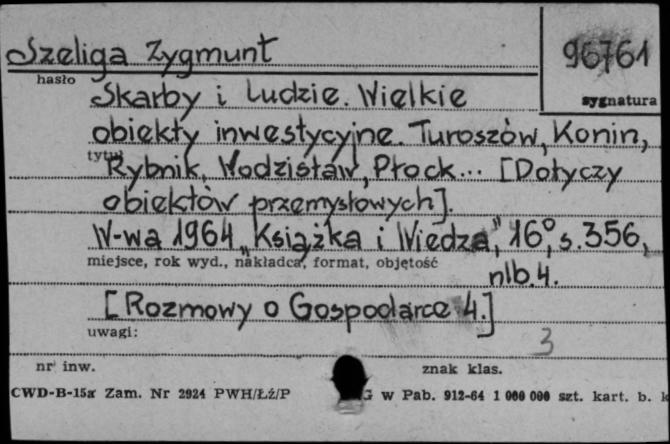 Szeliga Zygmunt
96761
hasło
sygnatura
Skarby i Ludzie. Wielkie
obiekty inwestycyjne. Turoszów, Konin,
tytuł
Rybnik, Wodzisław, Płock... [Dotyczy
obiektów przemysłowych].
W-wa 1964 „Książka i Wiedza", 16°, s. 356,
miejsce, rok wyd., nakładca, format, objętość
nlb. 4.
[Rozmowy o Gospodarce 4.]
uwagi:
3
nr inw.
znak klas.
CWD-B-15a Zam. Nr 2924 PWH/Łź/P
G w Pab. 912-64 1 000 000 szt. kart. b. k